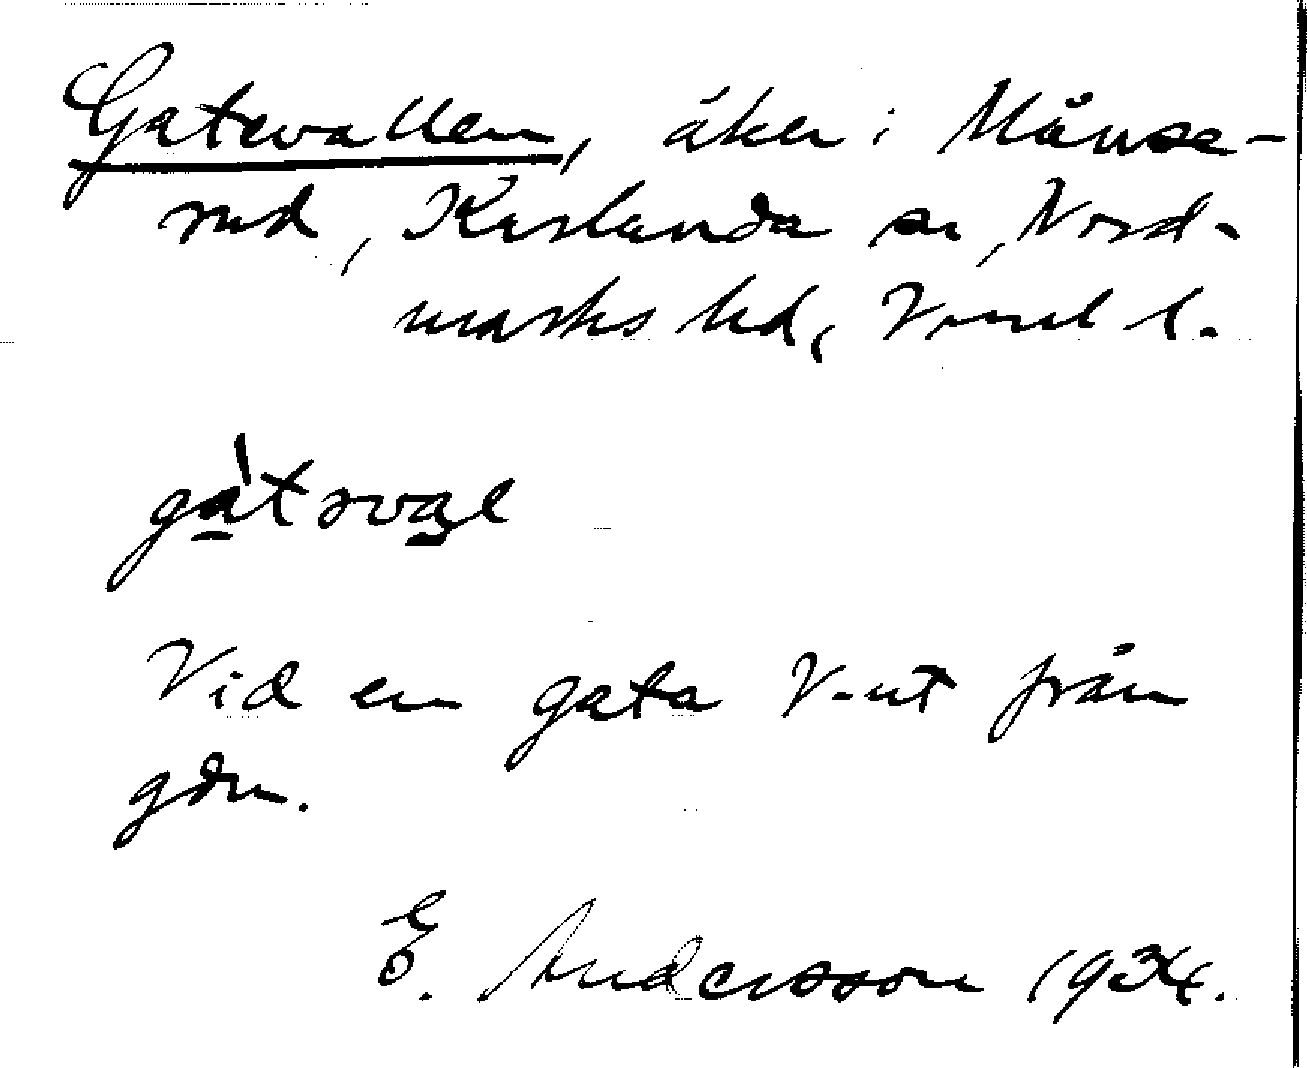 Gatevallen, åker i Månse-
rud, Karlanda sn, Nord-
marks hd, Vrml l.
Vid en gata V-ut från
gdn.
E. Andersson 1934.